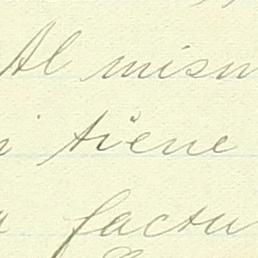 Al mism
tiene
factu